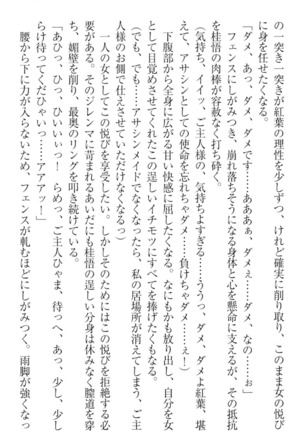 の一突き一突きが紅葉の理性を少しずつ、けれど確実に削り取り、このまま女の悦び
に身を任せたくなる。
「ダメ、あっ、ダメ、ダメです……あああぁ、ダメぇ……ダメ、なの……ぉ」
フェンスにしがみつき、崩れ落ちそうになる身体と心を懸命に支えるが、その抵抗
を桂悟の肉棒が容赦なく打ち砕く。
（気持ち、イイッ、ご主人様の、気持ちよすぎる……ううっ、ダメ、ダメよ紅葉、堪
えて、アサシンとしての使命を忘れちゃダメ……負けちゃダメ……ぇ！）
下腹部から全身に広がる甘い快感に屈したくなる。なにもかも放り出し、自分を女
として目覚めさせてくれたこの逞しいイチモツにすべてを捧げたくもなる。
（でも、でも……アサシンメイドでなくなったら、私の居場所が消えてしまう、ご主
人様のお側で仕えさせていただけなくなるっ）
一人の女としてこの悦びを享受したい。しかしそのためにはこの悦びを拒絶する必
要がある。そのジレンマに苛まれるあいだにも桂悟の逞しい分身は休みなく膣道を穿
ち、媚壁を削り、最奥のリングを叩き続けている。
「あひっ、ひっ、ひいぃぃ……っ！　らめっ、ご主人ひゃま、待っへ、あっ、少し、少し
らけ待ってくだひゃいっ……アアアッ！」
腰から下に力が入らないため、フェンスが軋むほどにしがみつく。雨脚が強くなっ